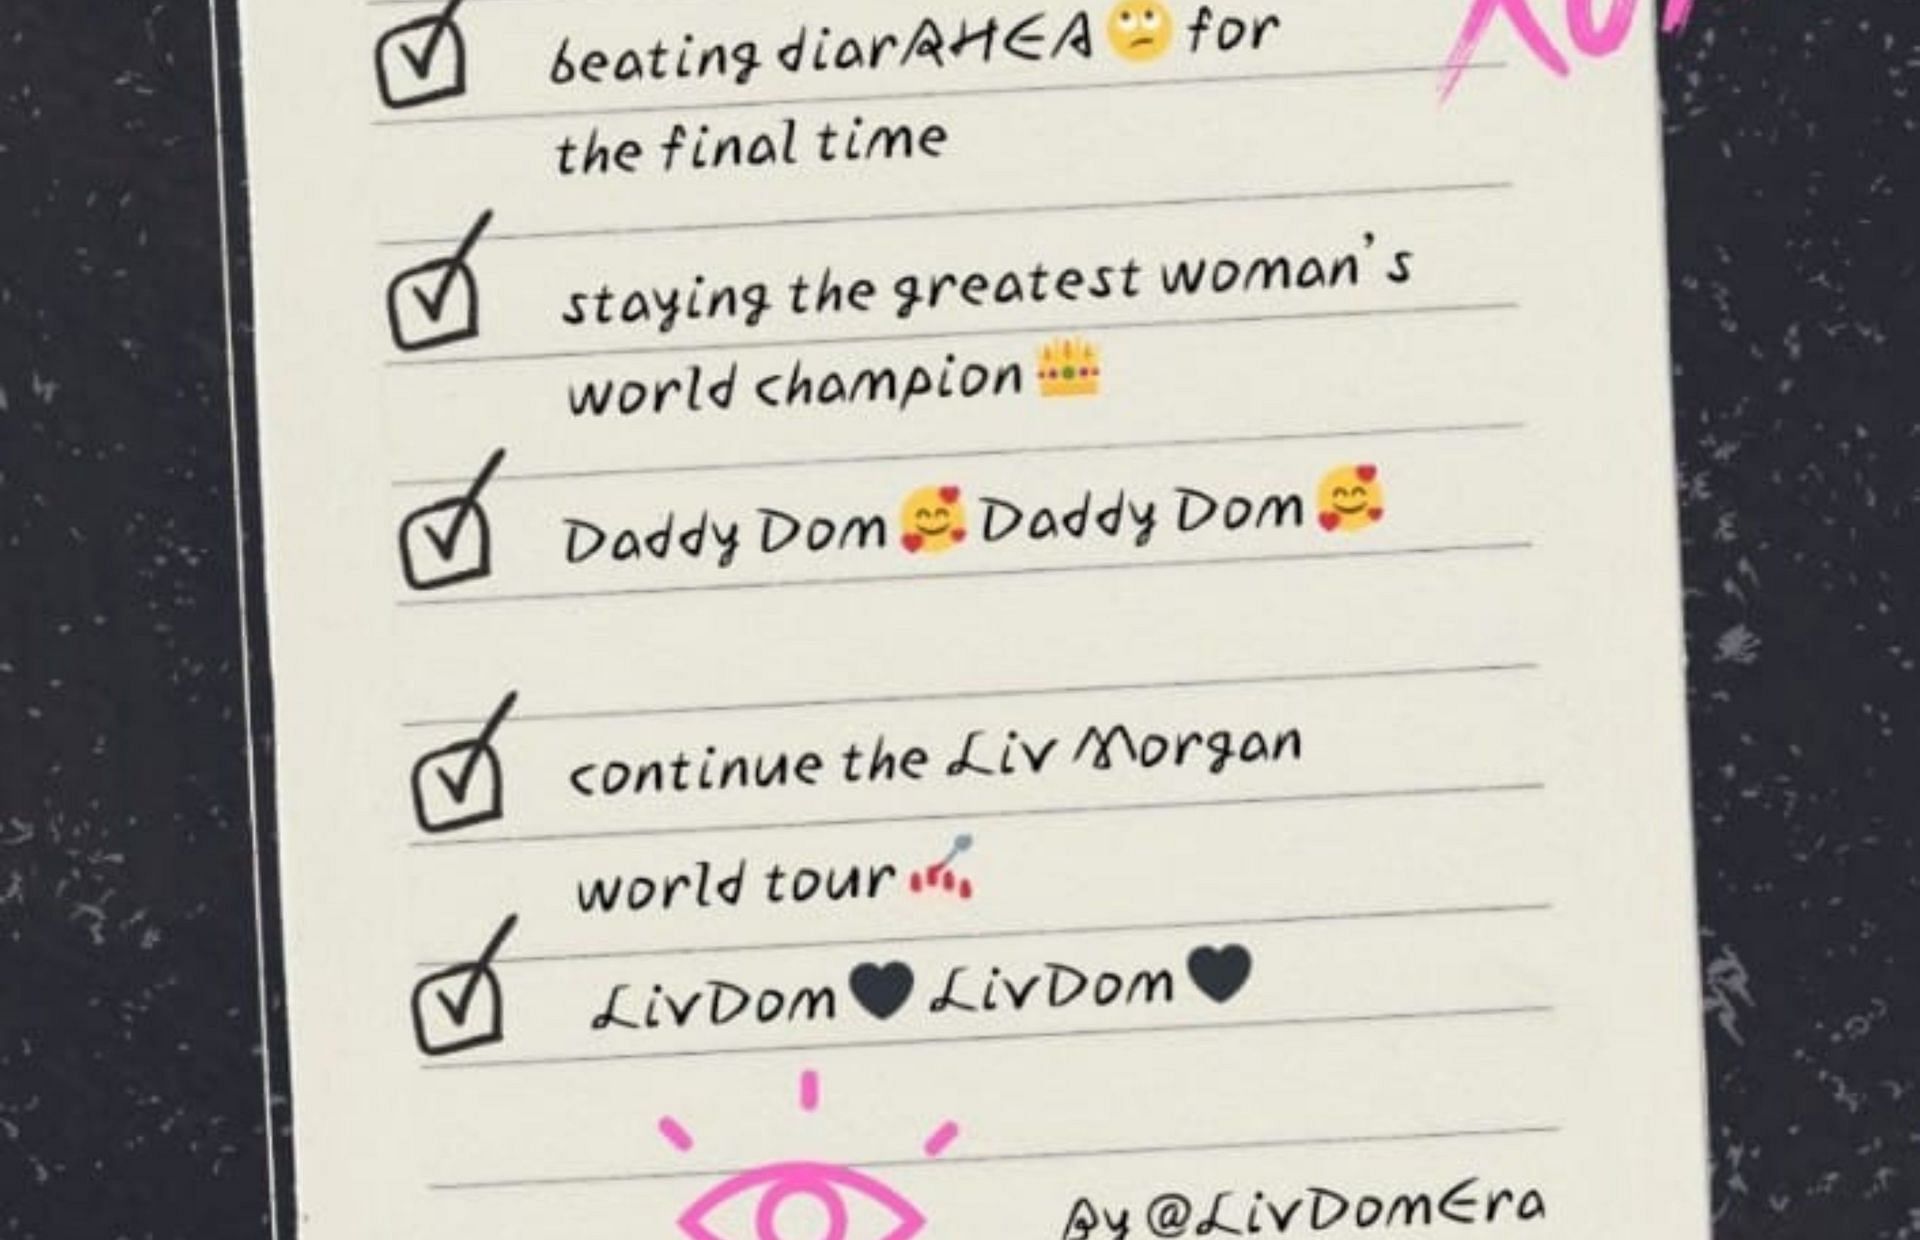 beating diarRHEA🙄 for
the final time
staying the greatest woman's
world champion👑
Daddy Dom🥰Daddy Dom🥰
continue the Liv Morgan
world tour💅
LivDom🖤LivDom🖤
By @LivDomEra